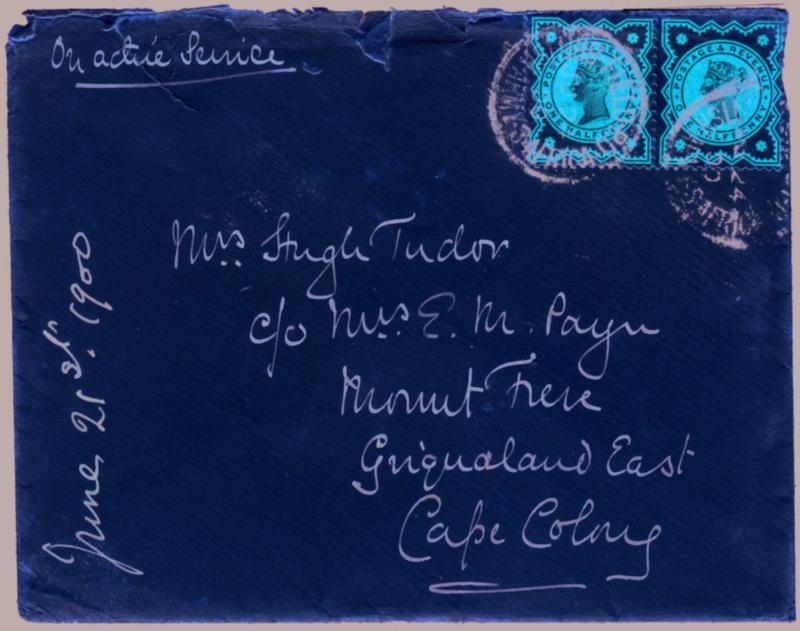 On active Service
POSTAGE & REVENUE
ONE HALFPENNY
POSTAGE & REVENUE
ONE HALFPENNY
Mrs Hugh Tudor
c/o Mrs E. M. Payn
Mount Frere
Griqualand East
Cape Colony
June 21st 1900